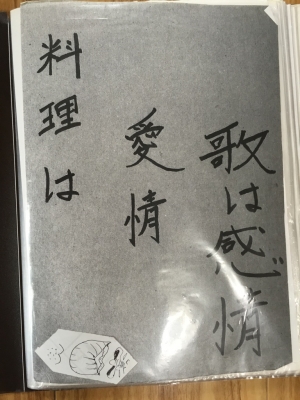 料理は
愛情
歌は感情